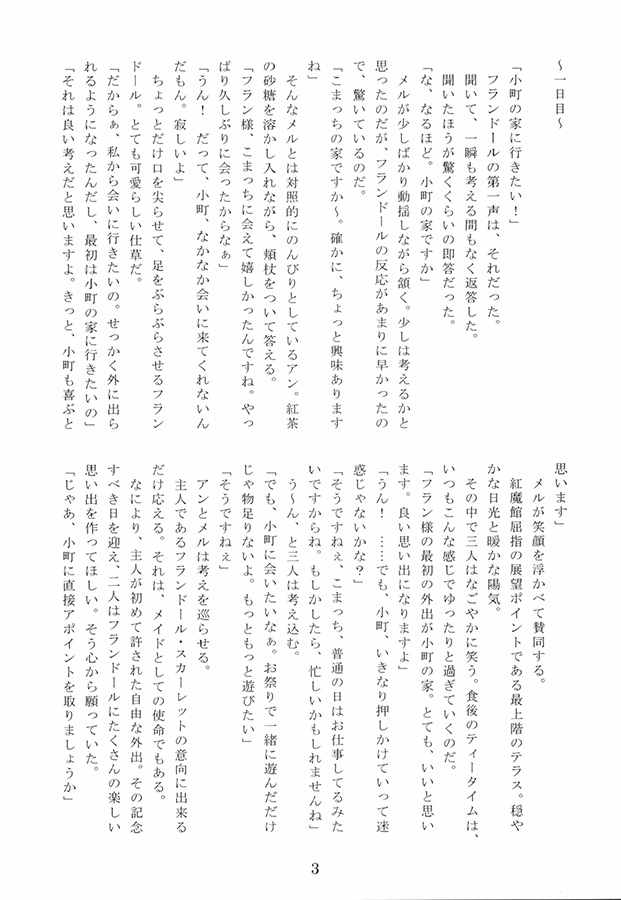 ～一日目～
「小町の家に行きたい！」
フランドールの第一声は、それだった。
聞いて、一瞬も考える間もなく返答した。
聞いたほうが驚くくらいの即答だった。
「な、なるほど。小町の家ですか」
メルが少しばかり動揺しながら頷く。少しは考えるかと
思ったのだが、フランドールの反応があまりに早かったの
で、驚いているのだ。
「こまっちの家ですか～。確かに、ちょっと興味あります
ね」
そんなメルとは対照的にのんびりとしているアン。紅茶
の砂糖を溶かし入れながら、頬杖をついて答える。
「フラン様、こまっちに会えて嬉しかったんですね。やっ
ぱり久しぶりに会ったからなぁ」
「うん！　だって、小町、なかなか会いに来てくれないん
だもん。寂しいよ」
ちょっとだけ口を尖らせて、足をぶらぶらさせるフラン
ドール。とても可愛らしい仕草だ。
「だからぁ、私から会いに行きたいの。せっかく外に出ら
れるようになったんだし、最初は小町の家に行きたいの」
「それは良い考えだと思いますよ。きっと、小町も喜ぶと
思います」
メルが笑顔を浮かべて賛同する。
紅魔館屈指の展望ポイントである最上階のテラス。穏や
かな日光と暖かな陽気。
その中で三人はなごやかに笑う。食後のティータイムは、
いつもこんな感じでゆったりと過ぎていくのだ。
「フラン様の最初の外出が小町の家。とても、いいと思い
ます。良い思い出になりますよ」
「うん！　……でも、小町、いきなり押しかけていって迷
惑じゃないかな？」
「そうですねぇ、こまっち、普通の日はお仕事してるみた
いですからね。もしかしたら、忙しいかもしれませんね」
う～ん、と三人は考え込む。
「でも、小町に会いたいなぁ。お祭りで一緒に遊んだだけ
じゃ物足りないよ。もっともっと遊びたい」
「そうですねぇ」
アンとメルは考えを巡らせる。
主人であるフランドール・スカーレットの意向に出来る
だけ応える。それは、メイドとしての使命でもある。
なにより、主人が初めて許された自由な外出。その記念
すべき日を迎え、二人はフランドールにたくさんの楽しい
思い出を作ってほしい。そう心から願っていた。
「じゃあ、小町に直接アポイントを取りましょうか」
3